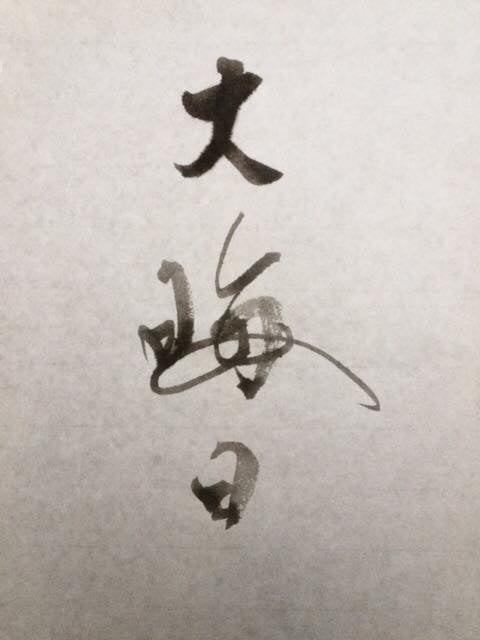 大晦日